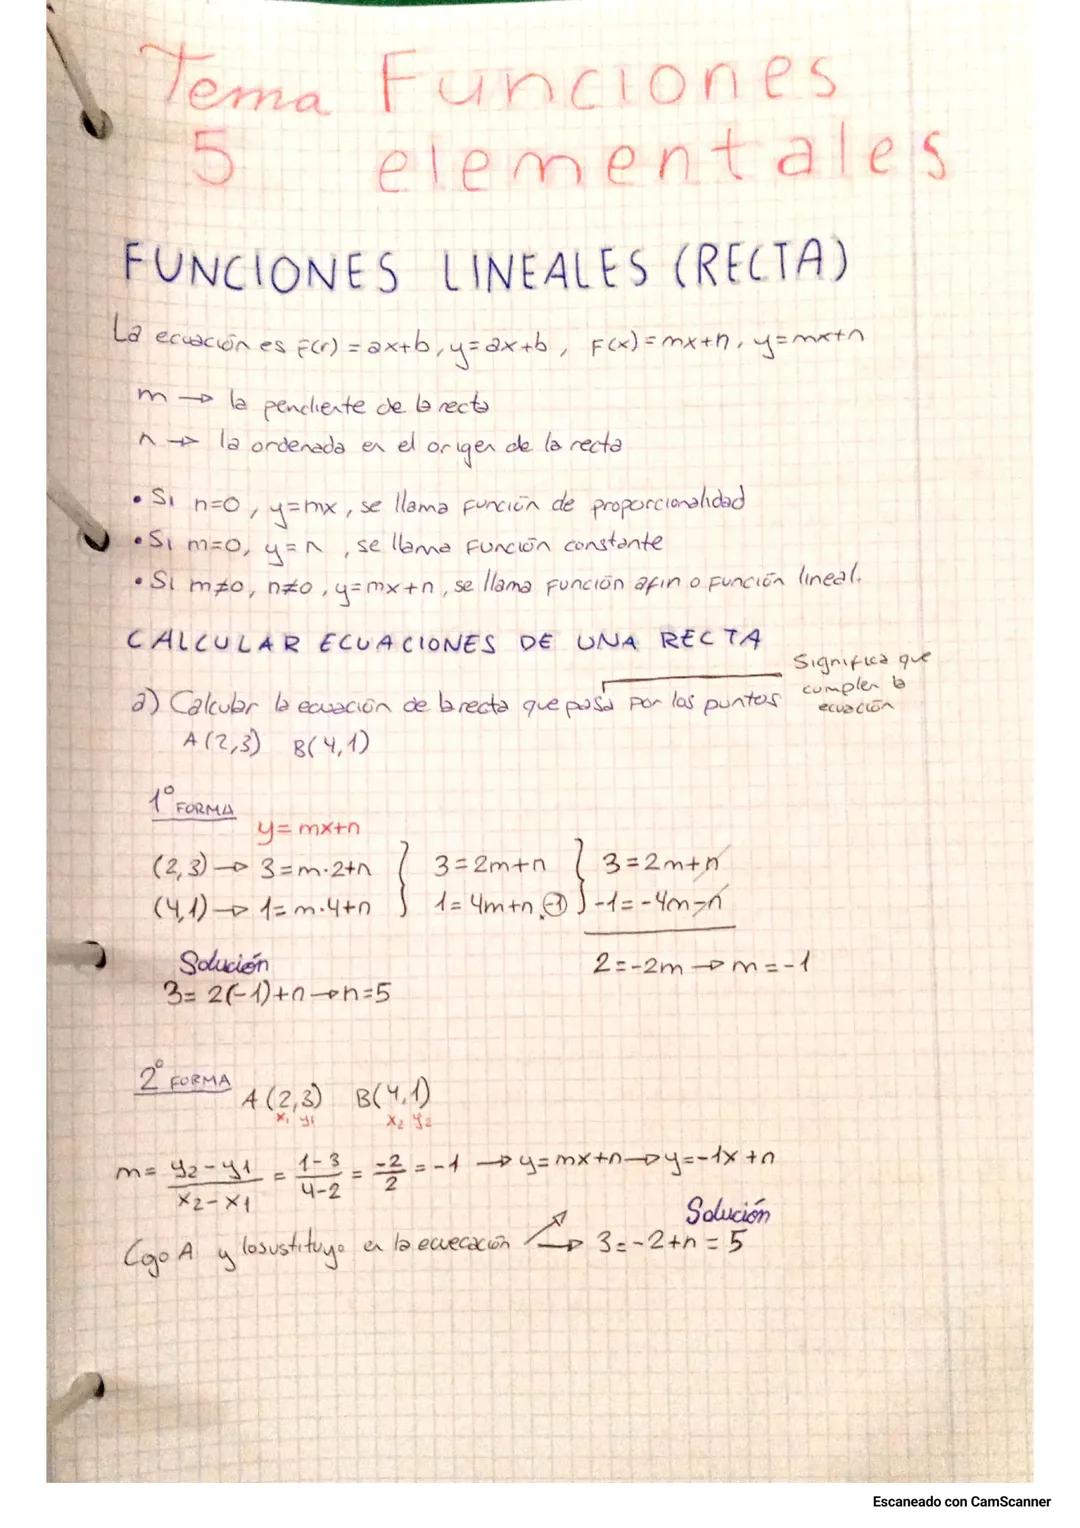 Tema Funciones
5 elementales
FUNCIONES LINEALES (RECTA)
La ecuación es F(x) = ax+b, y=ax+b, F(x)=mx+n, y=mx+n
m → la pendiente de la recta
n → la ordenada en el origen de la recta
• Si n=0, y=mx, se llama función de proporcionalidad
• Si m=0, y=n, se llama función constante
• Si m≠0, n≠0, y=mx+n, se llama función afín o función lineal.
CALCULAR ECUACIONES DE UNA RECTA
Significa que
cumplen la
ecuación
a) Calcular la ecuación de la recta que pasa por los puntos
A(2,3) B(4,1)
1º FORMA
y=mx+n
(2,3) → 3=m·2+n } 3=2m+n } 3=2m+n
(4,1) → 1=m·4+n } 1=4m+n·(-1) } -1=-4m-n
Solución
2=-2m → m=-1
3=2(-1)+n → n=5
2º FORMA
A(2,3) B(4,1)
x1 y1 x2 y2
m= y2-y1 / x2-x1 = 1-3 / 4-2 = -2/2 = -1 → y=mx+n → y=-1x+n
Solución
Cojo A y lo sustituyo en la ecuecación → 3=-2+n=5
Escaneado con CamScanner